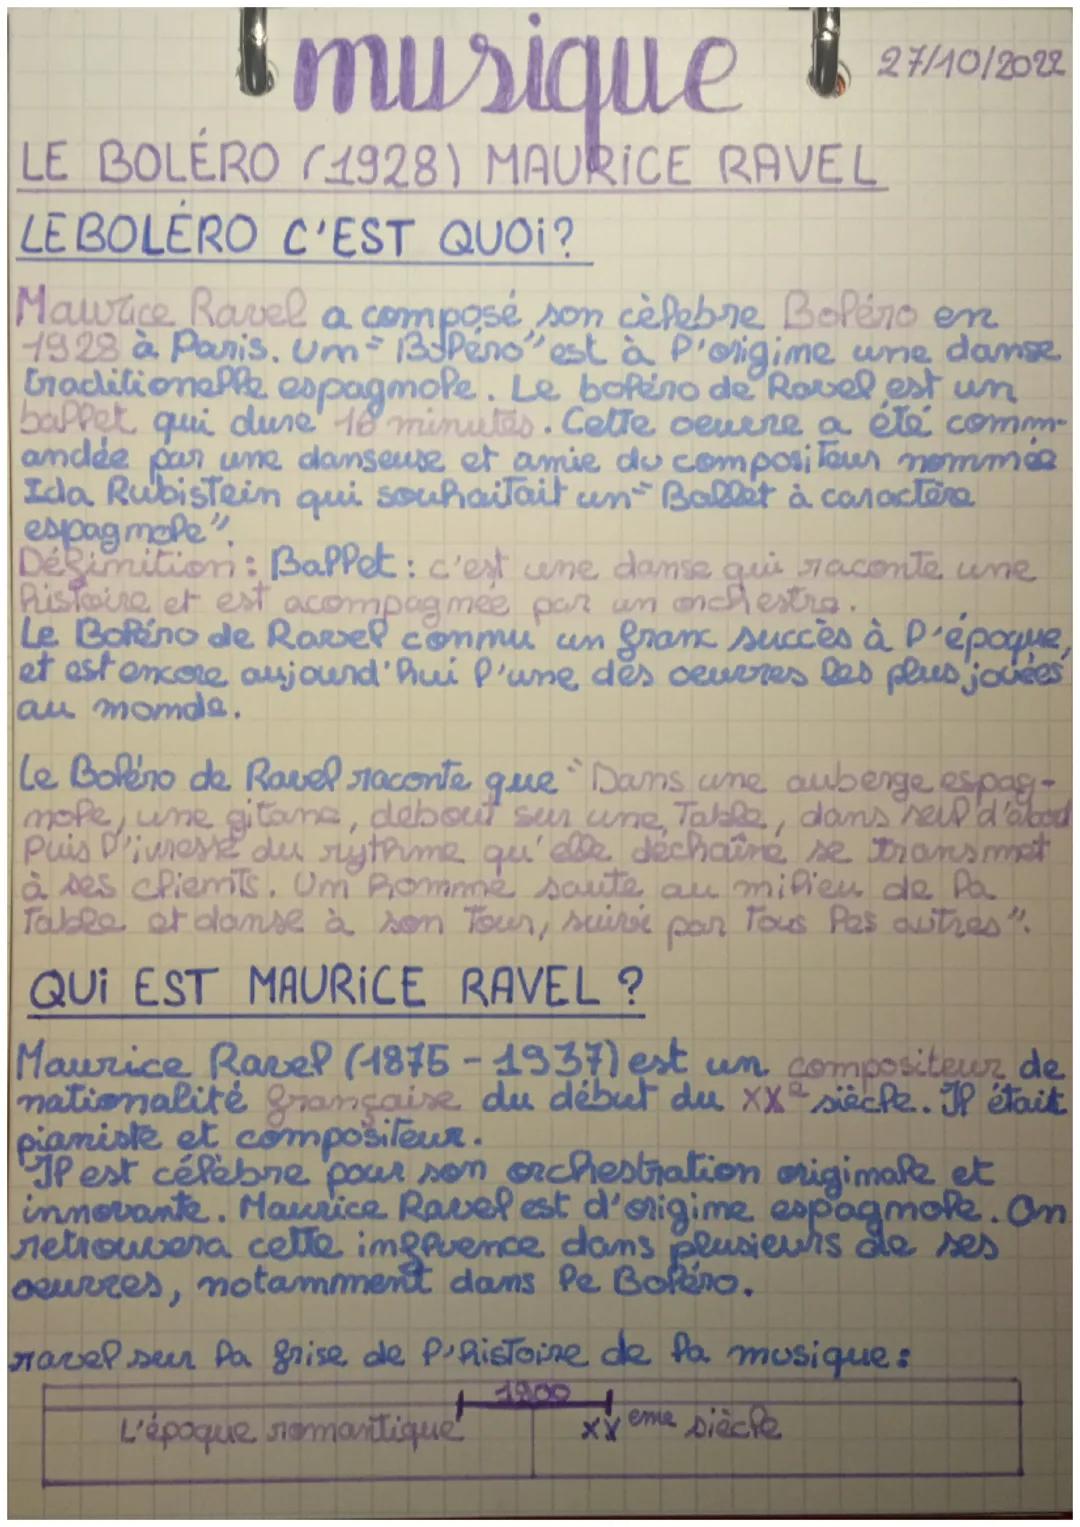 musique
27/10/2022
LE BOLÉRO (1928) MAURICE RAVEL
LE BOLÉRO C'EST QUOI?
Maurice Ravel a composé son cèlebre Boléro en
1928 à Paris. Un "Boléro" est à l'origine une danse
traditionelle espagnole. Le boléro de Ravel est un
ballet qui dure 16 minutes. Cette oeuvre a été comm-
andée par une danseuse et amie du compositeur nommée
Ida Rubistein qui souhaitait un "Ballet à caractère
espagnole".
Définition : Ballet : c'est une danse qui raconte une
histoire et est acompagnée par un orchestre.
Le Boléro de Ravel connu un franc succès à l'époque,
et est encore aujourd'hui l'une des oeuvres les plus jouées
au monde.
Le Boléro de Ravel raconte que "Dans une auberge espag-
nole, une gitane, debout sur une Table, dans seul d'abord
Puis l'ivresse du rythme qu'elle déchaîne se transmet
à ses clients. Un homme saute au milieu de la
Table et danse à son Tour, suivi par Tous les autres".
QUI EST MAURICE RAVEL ?
Maurice Ravel (1875 - 1937) est un compositeur de
nationalité française du début du XXe siècle. Il était
pianiste et compositeur.
Il est célèbre pour son orchestration originale et
innovante. Maurice Ravel est d'origine espagnole. On
retrouvera cette influence dans plusieurs de ses
oeuvres, notamment dans le Boléro.
ravel sur la frise de l'histoire de la musique :
1900
L'époque romantique XXeme siècle